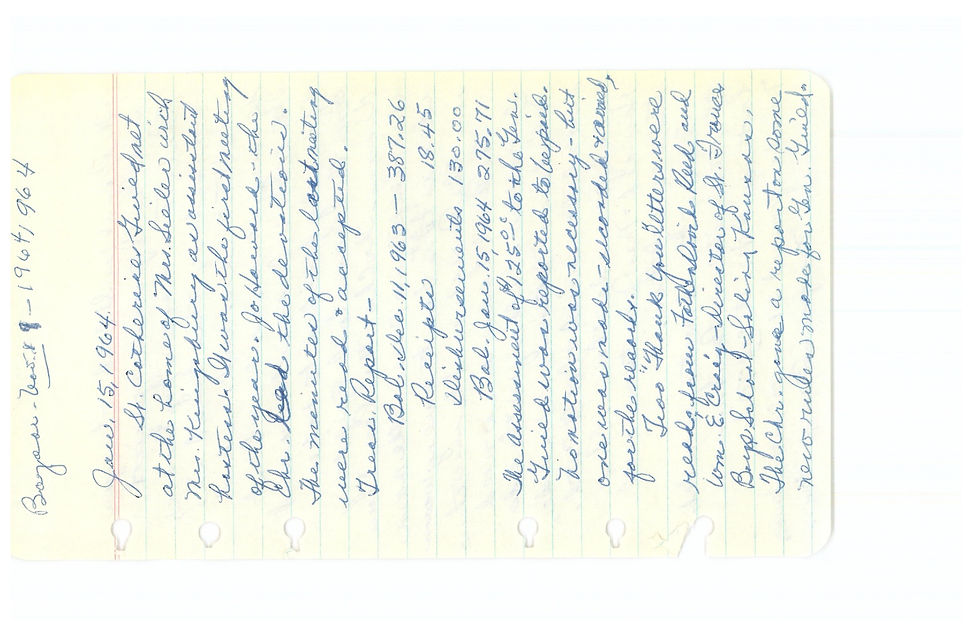 Bazaar - Nov. - 1964, 1964
Jan. 15, 1964.
St. Catherine Guild met
at the home of Mrs. Seiler with
Mrs. Kingsbury as assistant
hostess. It was the first meeting
of the year. Jo Howard - the
Chr. led the devotions.
The minutes of the last meeting
were read & accepted.
Treas. Report -
Bal. Dec 11, 1963 - 387.26
Receipts 18.45
Disbursements 130.00
Bal. Jan. 15 1964 275.71
The assessment of $125.00 to the Gen.
Guild was reported to be paid.
No motion was necessary - but
one was made - seconded & carried
for the records.
Two "Thank You" letters were
read, from Father David Reed and
Wm. E Craig - director of St. Francis
Boys School - Salina, Kansas.
The Chr. gave a report on some
new rules made for Gen. Guild.